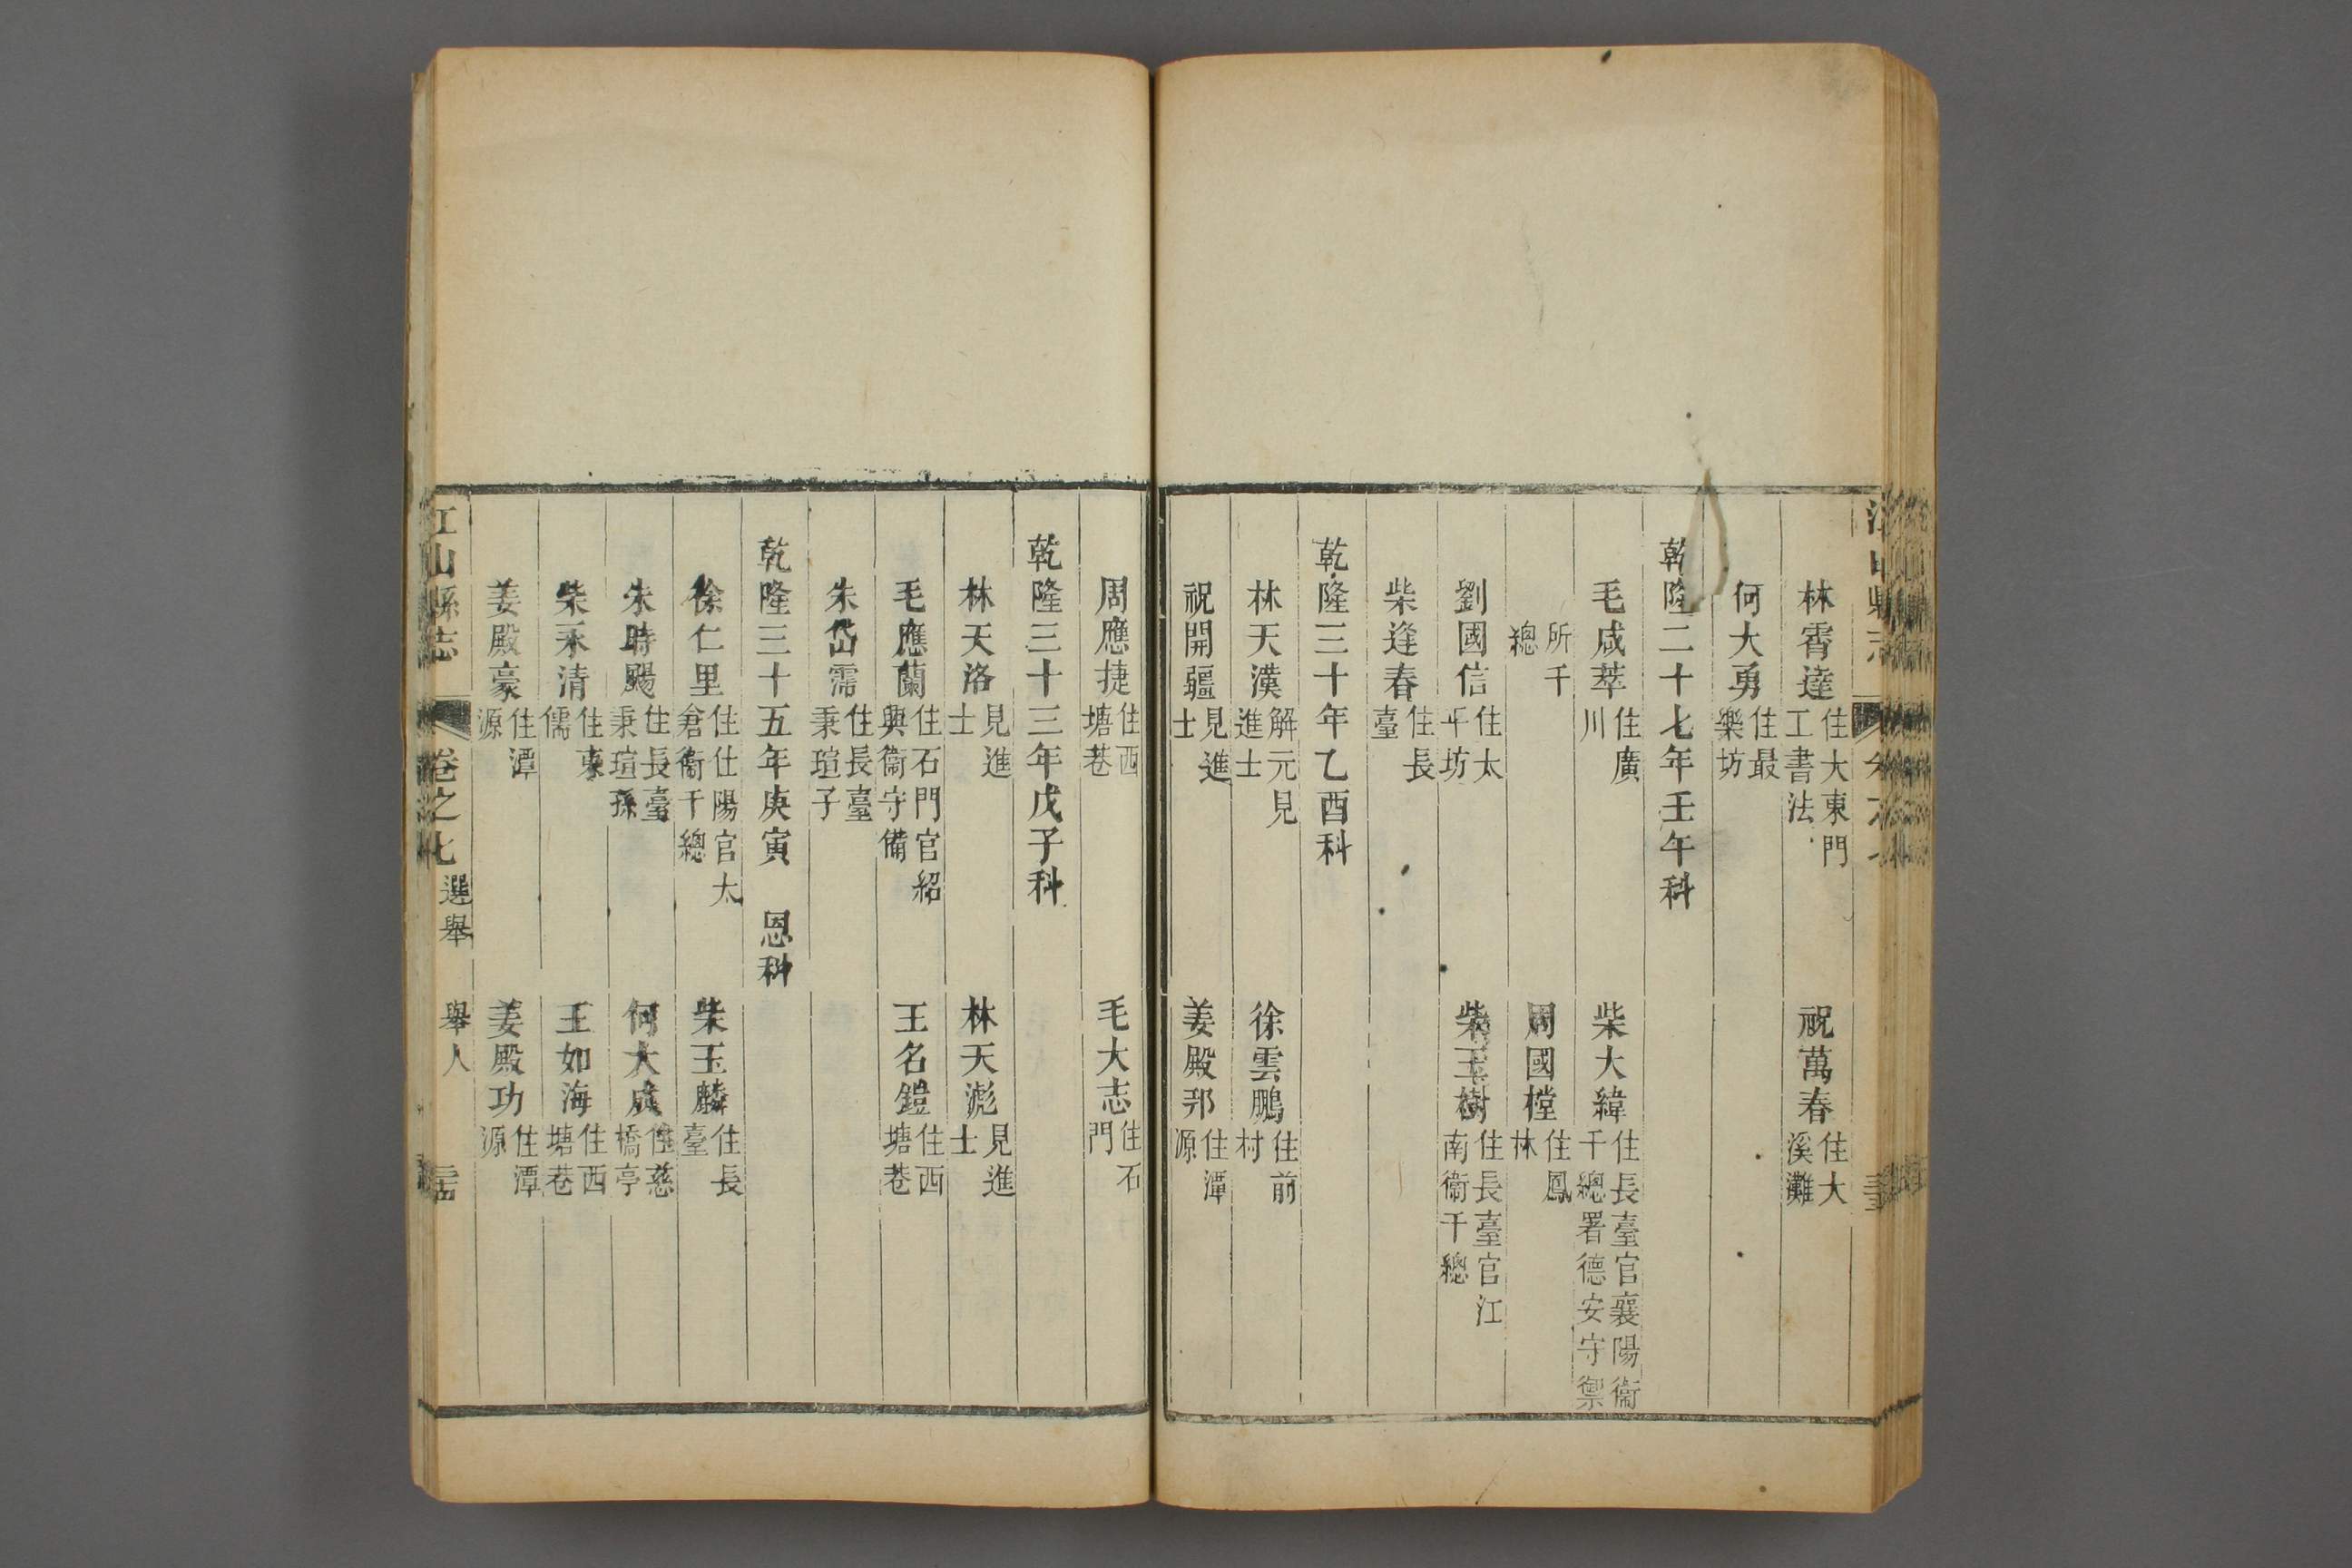 林霄達住大東門工書法　祝萬春住大溪灘
何大勇住最樂坊
乾隆二十七年壬午科
毛咸萃住廣川　柴大緯住長臺官襄陽衞千總署德安守禦
所千總　周國樘住鳳林
劉國信住太平坊　柴玉樹住長臺官江南衞千總
柴逢春住長臺
乾隆三十年乙酉科
林天漢解元見進士　徐雲鵬住前村
祝開疆見進士　姜殿邦住潭源
周應捷住西塘巷　毛大志住石門
乾隆三十三年戊子科
林天洛見進士　林天滮見進士
毛應蘭住石門官紹興衞守備　王名鎧住西塘巷
朱岱霈住長臺秉瑄子
乾隆三十五年庚寅　恩科
徐仁里住仕陽官太倉衞千總　柴玉麟住長臺
朱時颺住長臺秉瑄孫　何大成住慈橋亭
柴永清住東儒　王如海住西塘巷
姜殿豪住潭源　姜殿功住潭源
江山縣志　卷之七　選舉　舉人